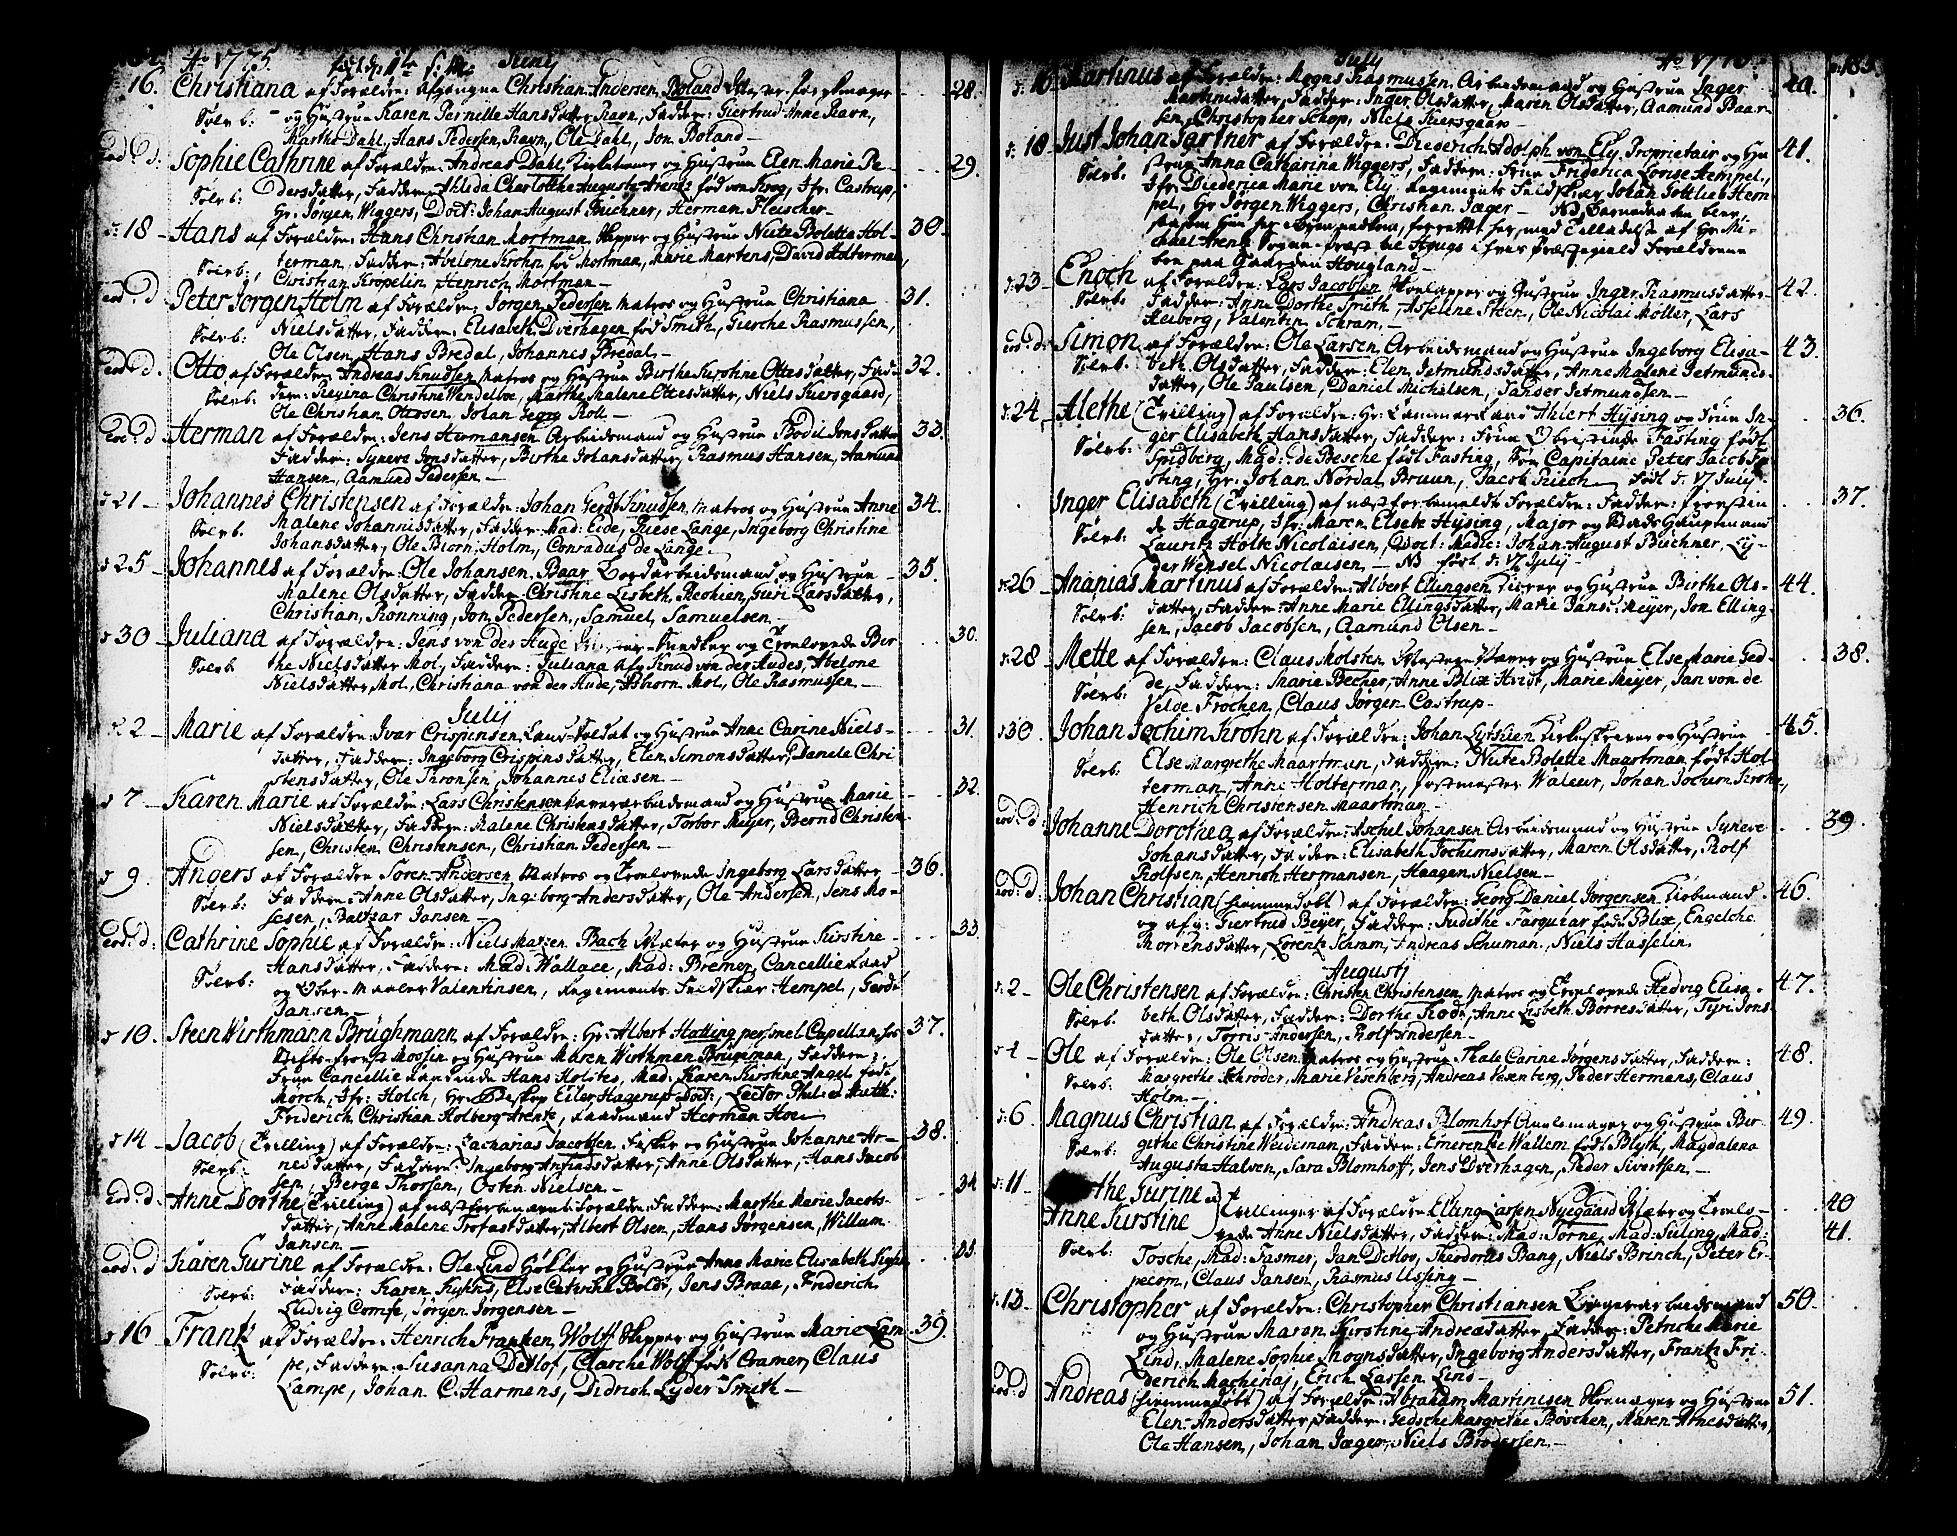 Ao 1775. Junij
16. Christiana af Forældre: Christian Andersen Boland 28.
Døbt. og Hustrue Karen Pernille Hans Datter Ravn, Faddere: Giertrud Anne Ravn,
Marthe Dahl, Hans Pedersen Ravn, Ole Dahl, Jon Boland
Eod: d. Sophie Cathrine af Forældre: Andreas Dahl og Hustrue Elen Marie Pe- 29.
dersdatter, Faddere: Charlotthe Augusta Arentz født von Krog, Jfr: Castrup,
Hr: Jørgen Wiggers, Doct: Johan August Büchner, Herman Fleischer
18 Hans af Forældre: Hans Christian Mortman Skipper og Hustrue Niute Bolette Hol- 30.
terman, Faddere: Abelone Krohn født Mortman, Marie Martens, David Holterman,
Christian Kropelin, Henrich Mortman
eod: d Peter Jørgen Holm af Forældre: Jørgen Pedersen Matros og Hustrue Christiana 31.
Niels datter, Faddere: Elisabeth Dverhagen født Smith, Giesche Rasmussen,
Ole Olsen, Hans Bredal, Johannes Bredal
Eod: d. Otto af Forældre: Andreas Knudsen Matros og Hustrue Birthe Kirstine Ottes datter, Fad- 32.
dere: Regina Christine Wendelboe, Marthe Malene Ottesdatter, Niels Kiersgaard,
Ole Christian Ottosen, Johan Georg Roll
Eod: d Herman af Forældre: Jens Hermansen Arbeidsmand og Hustrue Bodil Jons datter 33.
Faddere: Syneve Jonsdatter, Birthe Johansdatter, Rasmus Hansen, Aamund
Hansen, Aamund Pedersen
21 Johannes Christensen af Forældre: Johan Gerdt Knudsen, Matros og Hustrue Anne 34.
Malene Johannisdatter, Faddere: Mad: Eide, Giese Lange, Ingeborg Christine
Johansdatter, Ole Biørn, Holm, Conradus de Lange
25 Johannes af Forældre: Ole Johansen Baar arbeidsmand og Hustrue 35.
Malene Olsdatter, Faddere: Christine Lisbeth, Guri Larsdatter,
Christian, Rønning, Jon Pedersen, Samuel Samuelsen
30 Juliana af Forældre: Jens von der Hude og Trolovede Bir- 30.
the Nielsdatter Mol, Faddere: Juliana Knud von der Hudes, Abelone
Nielsdatter Mol, Christiana von der Hude, Asbiorn Mol, Ole Rasmussen
Julij
2 Marie af Forældre: Ivar Crispinsen Land-Soldat og Hustrue Anne Carine Niels- 31.
datter, Faddere: Ingeborg Crispinsdatter, Elen Simonsdatter, Danele Chri-
stensdatter, Ole Thronsen, Johannes Eliæsen
7 Karen Marie af Forældre: Lars Christensen arbeidsmand og Hustrue Marie 32.
Nielsdatter, Faddere: Malene Christensdatter, Torbor Meyer, Bernd Christen-
sen, Christen Christensen, Christian Pedersen
9. Anders af Forældre Soren Andersen Matros og Trolovede Ingeborg Larsdatter 36.
Faddere: Anne Olsdatter, Ingeborg Andersdatter, Ole Andersen, Jens Mo-
sesen, Baltzar Jansen
eod: d: Cathrine Sophie af Forældre: Niels Bach og Hustrue Kirstine 33
Hansdatter, Faddere: Mad: Wallace, Mad: Bremer, Cancellie Raad
og Valentinsen, Regiments Feldskiær Hempel, Gerdt
Jansen
10. Steen Wirthmann Brüghmann af Forældre: Hr: Albert Hatting personel Capellan hos 37.
Stifts-Provst Mossin og Hustrue Maren Wirthman Brüman, Faddere:
Frue Cancellie Raadinde Hans Holstes, Mad: Karen Kirstine Angel født
Mørch, Jfr: Holch, Hr Biskop Eiler Hagerup Doct:, Lector Phil: et Math:
Friderich Christian Holberg Arentz, Raadmand Herman Hoe
14 Jacob (Tvilling) af Forældre: Zacharias Jacobsen Fisker og Hustrue Johanne Ar- 38.
nesdatter, Faddere: Ingeborg Anfindsdatter, Anne Olsdatter, Hans Jacob-
sen, Berge Thorsen, Osten Nielsen
Eod: d. Anne Dorthe (Tvilling) af næstforbenævnte Forældre: Faddere: Marthe Marie Jacobs- 34
datter, Anne Malene Trofastdatter, Albert Olsen, Hans Jørgensen, Willum
Jansen
eod: d Karen Gurine af Forældre: Ole Lind Høkker og Hustrue Anne Marie Elisabeth 35.
Faddere: Karen, Else Catrine Boldt, Jens Braae, Friderich
Ludvig Compe, Jørgen Jørgensen
16 Frantz af Forældre: Henrich Franken Wolff Skipper og Hustrue Marie Lam- 39.
pe, Faddere: Susanna Detlof, Clarche Wolff født Cramer, Claus
Lampe, Johan C. Harmens, Didrich Lyder Smith
July Ao 1775. 183.
16 Martinus af Forældre: Mogns Rasmussen Arbeidsmand og Hustrue Inger 40.
Martinsdatter, Faddere: Inger Olsdatter, Maren Olsdatter, Aamund Baar-
sen, Christopher Schop, Niels Kiersgaard
18 Just Johan Gartner af Forældre: Diederich Adolph von Ely, Proprietair og Hu- 41.
strue Anna Catharina Wiggers, Faddere: Frue Friderica Lovise Hempel,
Jfr: Diederica Marie von Ely, Regiments Feldskiær Johan Gottlieb Hem-
pel, Hr Jørgen Wiggers, Christian Jæger NB, Barnedaaben blev,
forrettet her, med Tilladelse af Hr Mi-
chael Arentz Sogne-Præst til Haugs Præstegield Forældrene
boe paa Gaarden Hougland
23 Enoch af Forældre: Lars Jacobsen og Hustrue Inger Rasmusdatter 42.
Faddere: Anne Dorthe Smith, Asselene Steen, Ole Nicolai Møller, Lars
Heiberg, Valentin Schram
eod: d. Simon af Forældre: Ole Larsen Arbeidsmand og Hustrue Ingeborg Elisa- 43.
beth Olsdatter, Faddere: Elen Jetmundsdatter, Anne Malene Jetmunds-
datter, Ole Paulsen, Daniel Michelsen, Sander Jetmundsen
24 Alethe (Tvilling) af Forældre: Hr: Cammer-Raad Ahlert Hysing og Frue In- 36.
ger Elisabeth Hansdatter, Faddere: Frue Obristinde Fasting født
Fridberg, Mad: de Besche født Fasting, Capitaine Peter Jacob
Hr: Johan Nordal Bruun, Jacob født d. 17 July.
Inger Elisabeth (Tvilling) af næstforbemeldte Forældre: Faddere: Provstin- 37.
de Hagerup, Jfr: Maren Elsebe Hysing, Major og Stads Hauptmand
Lauritz Holte Nicolaisen, Doct: Medic: Johan August Büchner, Ly-
der Wensel Nicolaisen NB født d. 17 Julij
26 Ananias Martinus af Forældre: Albert Ellingsen og Hustrue Birthe Ols- 44.
datter, Faddere: Anne Marie Ellingsdatter, Marie Jansd: Meyer, Jon Elling-
sen, Jacob Jacobsen, Aamund Olsen
28 Mette af Forældre: Claus Molsten og Hustrue Else Marie Ged- 38.
de, Faddere: Marie Becher, Anne Blix Hvidt, Marie Meyer, Jan von de
Velde Frochen, Claus Jørgen Castrup
30. Johan Jochim Krohn af Forældre: Johan Lythien og Hustrue 45.
Else Margrethe Maartman, Faddere: Niute Bolette Maartman født Hol-
terman, Anne Holterman, Postmester Waleur, Johan Jochim Krohn,
Henrich Christensen Maartman
eod: d: Johanne Dorothea af Forældre: Aschel Johansen Arbeidsmand og Hustrue Syneve 39.
Johansdatter, Faddere: Elisabeth Jochimsdatter, Maren Olsdatter, Rolf
Rolfsen, Henrich Hermansen, Haagen Nielsen
Eod: d: Johan Christian (hiemmedøbt) af Forældre: Georg Daniel Jørgensen Kiøbmand 46.
og Giertrud Beyer, Faddere: Judithe Farquhar født Blix, Engelche
Mortensdatter, Lorentz Schram, Andreas Schuman, Niels Hasselin.
Augustj
2 Ole Christensen af Forældre: Christen Christensen Matros og Trolovede Hedvig Elisa- 47.
beth Olsdatter, Faddere: Dorthe Rode, Anne Lisbeth Børresdatter, Tyri Jons-
datter, Torris Andersen, Rolf Andersen
4 Ole af Forældre: Ole Olsen Matros og Hustrue Thale Carine Jørgensdatter, Faddere: 48.
Margrethe Schrøder, Marie Veschberg, Andreas Vesenberg, Peder Hermans, Claus
Holm
6 Magnus Christian af Forældre: Andreas Blomhof og Hustrue Bir- 49.
gethe Christine Weideman, Faddere: Emerentze Wallem født Blyth, Magdalena
Augusta Halsen, Sara Blomhoff, Jens Dverhagen, Peder Sivertsen
11 the Gurine et Anne Kirstine Tvillinger af Forældre Elling Larsen Nyegaard og Trolo- 40
vede Anne Nielsdatter, Faddere: Mad: Torne, Mad: Suling, Mad: 41.
Tosche, Mad: Fasmer, Jan Detlov, Theodorus Bang, Niels Brinch, Peter Er-
pecom, Claus Jansen, Rasmus Ussing
13 Christopher af Forældre: Christopher Christiansen arbeidsmand 50.
og Hustrue Maren Kirstine Andreasdatter, Faddere: Petriche Marie
Lind, Malene Sophie Mognsdatter, Ingeborg Andersdatter, Frantz Fri-
derich Machinaj, Erich Larsen Lind
eod: d Andreas (hiemmedøbt) af Forældre: Abraham Martinisen Skomager og Hustrue 51.
Elen Andersdatter, Faddere: Gedsche Margrethe Bøschen, Maren Arnesdatter,
Ole Hansen, Johan Jæger, Niels Brodersen